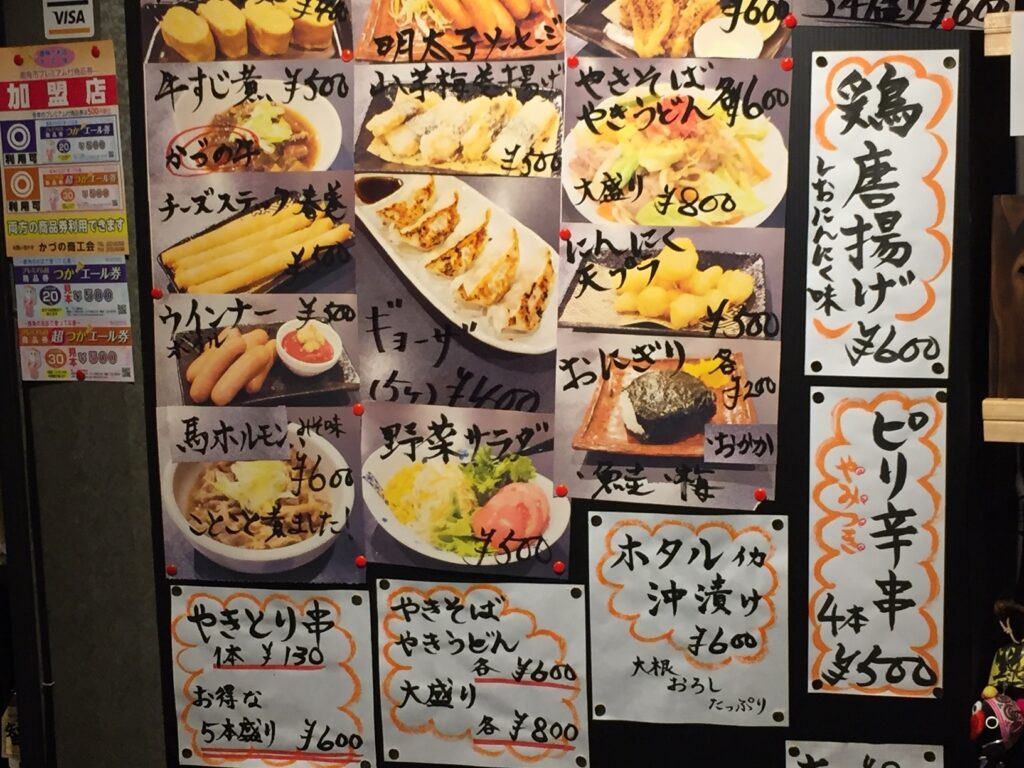 VISA
加盟店
つかエール券
20
¥500
利用可
超つかエール券
30
¥500
利用可
両方の商品券利用できます
かづの商工会
つかエール券
20
見本
¥500
超つかエール券
30
見本
¥500
明太子ソーセージ
¥600
牛すじ煮、¥500
かづの牛
山芋梅巻揚げ
¥500
やきそば
やきうどん 各¥600
大盛り
¥800
チーズスティック春巻
¥500
ギョーザ
(5ヶ) ¥400
にんにく
天プラ
¥500
ウインナー
ボイル
¥500
おにぎり 各
¥200
・おかか
・鮭 ・梅
馬ホルモン、みそ味
¥600
ことこと煮ました!
野菜サラダ
¥500
やきとり串
1本 ¥130
お得な
5本盛り ¥600
やきそば
やきうどん
各 ¥600
大盛り
各 ¥800
ホタルイカ
沖漬け
¥600
大根
おろし
たっぷり
鶏唐揚げ
しおにんにく味
¥600
ピリ辛串
やみつき
4本
¥500